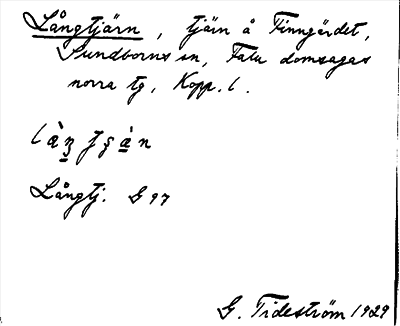 Långtjärn, tjärn å Finngärdet,
Sundborns sn, Falu domsagas
norra tg, Kopp. l.
Långtj. G 97
G. Tideström 1929